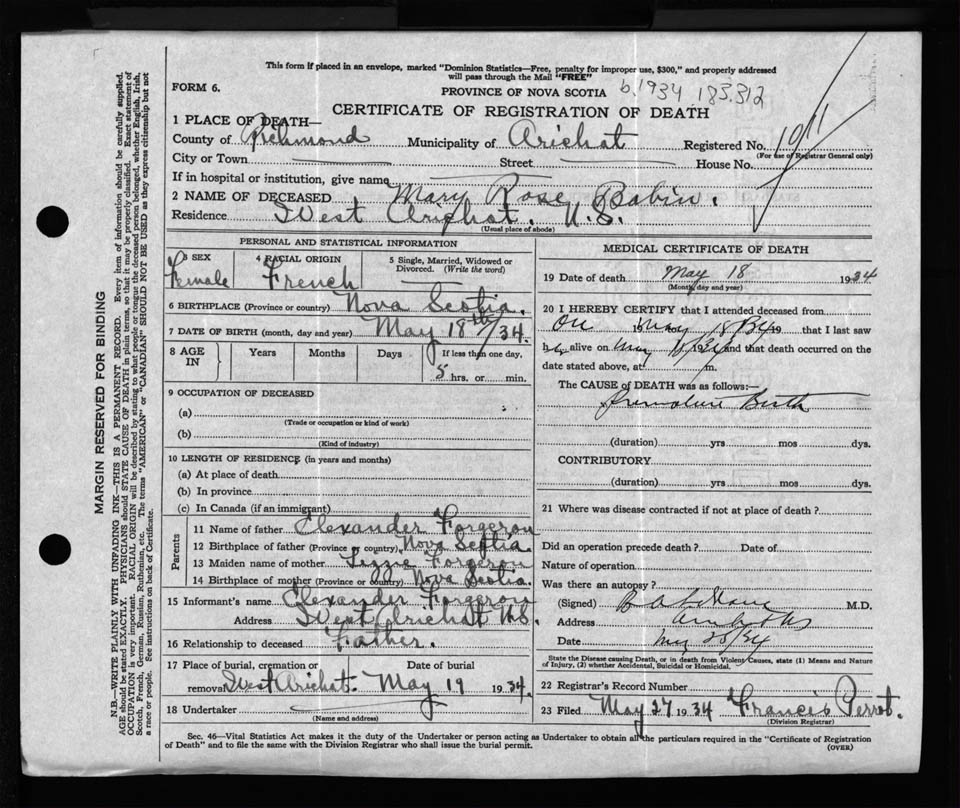 This form if placed in an envelope, marked "Dominion Statistics—Free, penalty for improper use, $300," and properly addressed
will pass through the Mail "FREE"
FORM 6.
PROVINCE OF NOVA SCOTIA b.1934 183.312
CERTIFICATE OF REGISTRATION OF DEATH
1 PLACE OF DEATH—
County of Richmond Municipality of Arichat Registered No. 1011
(For use of Registrar General only)
City or Town Street House No.
If in hospital or institution, give name
2 NAME OF DECEASED Mary Rose Babin.
Residence West Arichat. N.S.
(Usual place of abode)
PERSONAL AND STATISTICAL INFORMATION
3 SEX 4 RACIAL ORIGIN 5 Single, Married, Widowed or
Divorced. (Write the word)
Female French
6 BIRTHPLACE (Province or country) Nova Scotia.
7 DATE OF BIRTH (month, day and year) May 18th/34.
8 AGE IN Years Months Days If less than one day,
5 hrs. or min.
9 OCCUPATION OF DECEASED
(a)
(Trade or occupation or kind of work)
(b)
(Kind of industry)
10 LENGTH OF RESIDENCE (in years and months)
(a) At place of death
(b) In province
(c) In Canada (if an immigrant)
Parents
11 Name of father Alexander Forgeron
12 Birthplace of father (Province or country) Nova Scotia
13 Maiden name of mother Lizzie Forgeron
14 Birthplace of mother (Province or country) Nova Scotia.
15 Informant's name Alexander Forgeron
Address West Arichat N.S.
16 Relationship to deceased Father.
17 Place of burial, cremation or Date of burial
removal West Arichat. May 19 1934.
18 Undertaker
(Name and address)
MEDICAL CERTIFICATE OF DEATH
19 Date of death May 18 1934
(Month, day and year)
20 I HEREBY CERTIFY that I attended deceased from
On May 18/34 19 that I last saw
h alive on May 18 1934 and that death occurred on the
date stated above, at m.
The CAUSE OF DEATH was as follows:—
Premature Birth
(duration) yrs mos dys.
CONTRIBUTORY
(duration) yrs mos dys.
21 Where was disease contracted if not at place of death?
Did an operation precede death? Date of
Nature of operation
Was there an autopsy?
(Signed) M.D.
Address
Date May 25/34
State the Disease causing Death, or in death from Violent Causes, state (1) Means and Nature
of Injury, (2) whether Accidental, Suicidal or Homicidal.
22 Registrar's Record Number
23 Filed May 27 1934 Francis Perrot.
(Division Registrar)
Sec. 46—Vital Statistics Act makes it the duty of the Undertaker or person acting as Undertaker to obtain all the particulars required in the "Certificate of Registration
of Death" and to file the same with the Division Registrar who shall issue the burial permit.
(OVER)
MARGIN RESERVED FOR BINDING
N.B.—WRITE PLAINLY WITH UNFADING INK—THIS IS A PERMANENT RECORD. Every item of information should be carefully supplied.
AGE should be stated EXACTLY. PHYSICIANS should STATE CAUSE OF DEATH in plain terms, so that it may be properly classified. Exact statement of
OCCUPATION is very important. RACIAL ORIGIN will be described by stating to what people or tongue the deceased person belonged, whether English, Irish,
Scotch, French, German, Russian, Ruthenian, etc. The terms "AMERICAN" or "CANADIAN" SHOULD NOT BE USED as they express citizenship but not
a race or people. See instructions on back of Certificate.